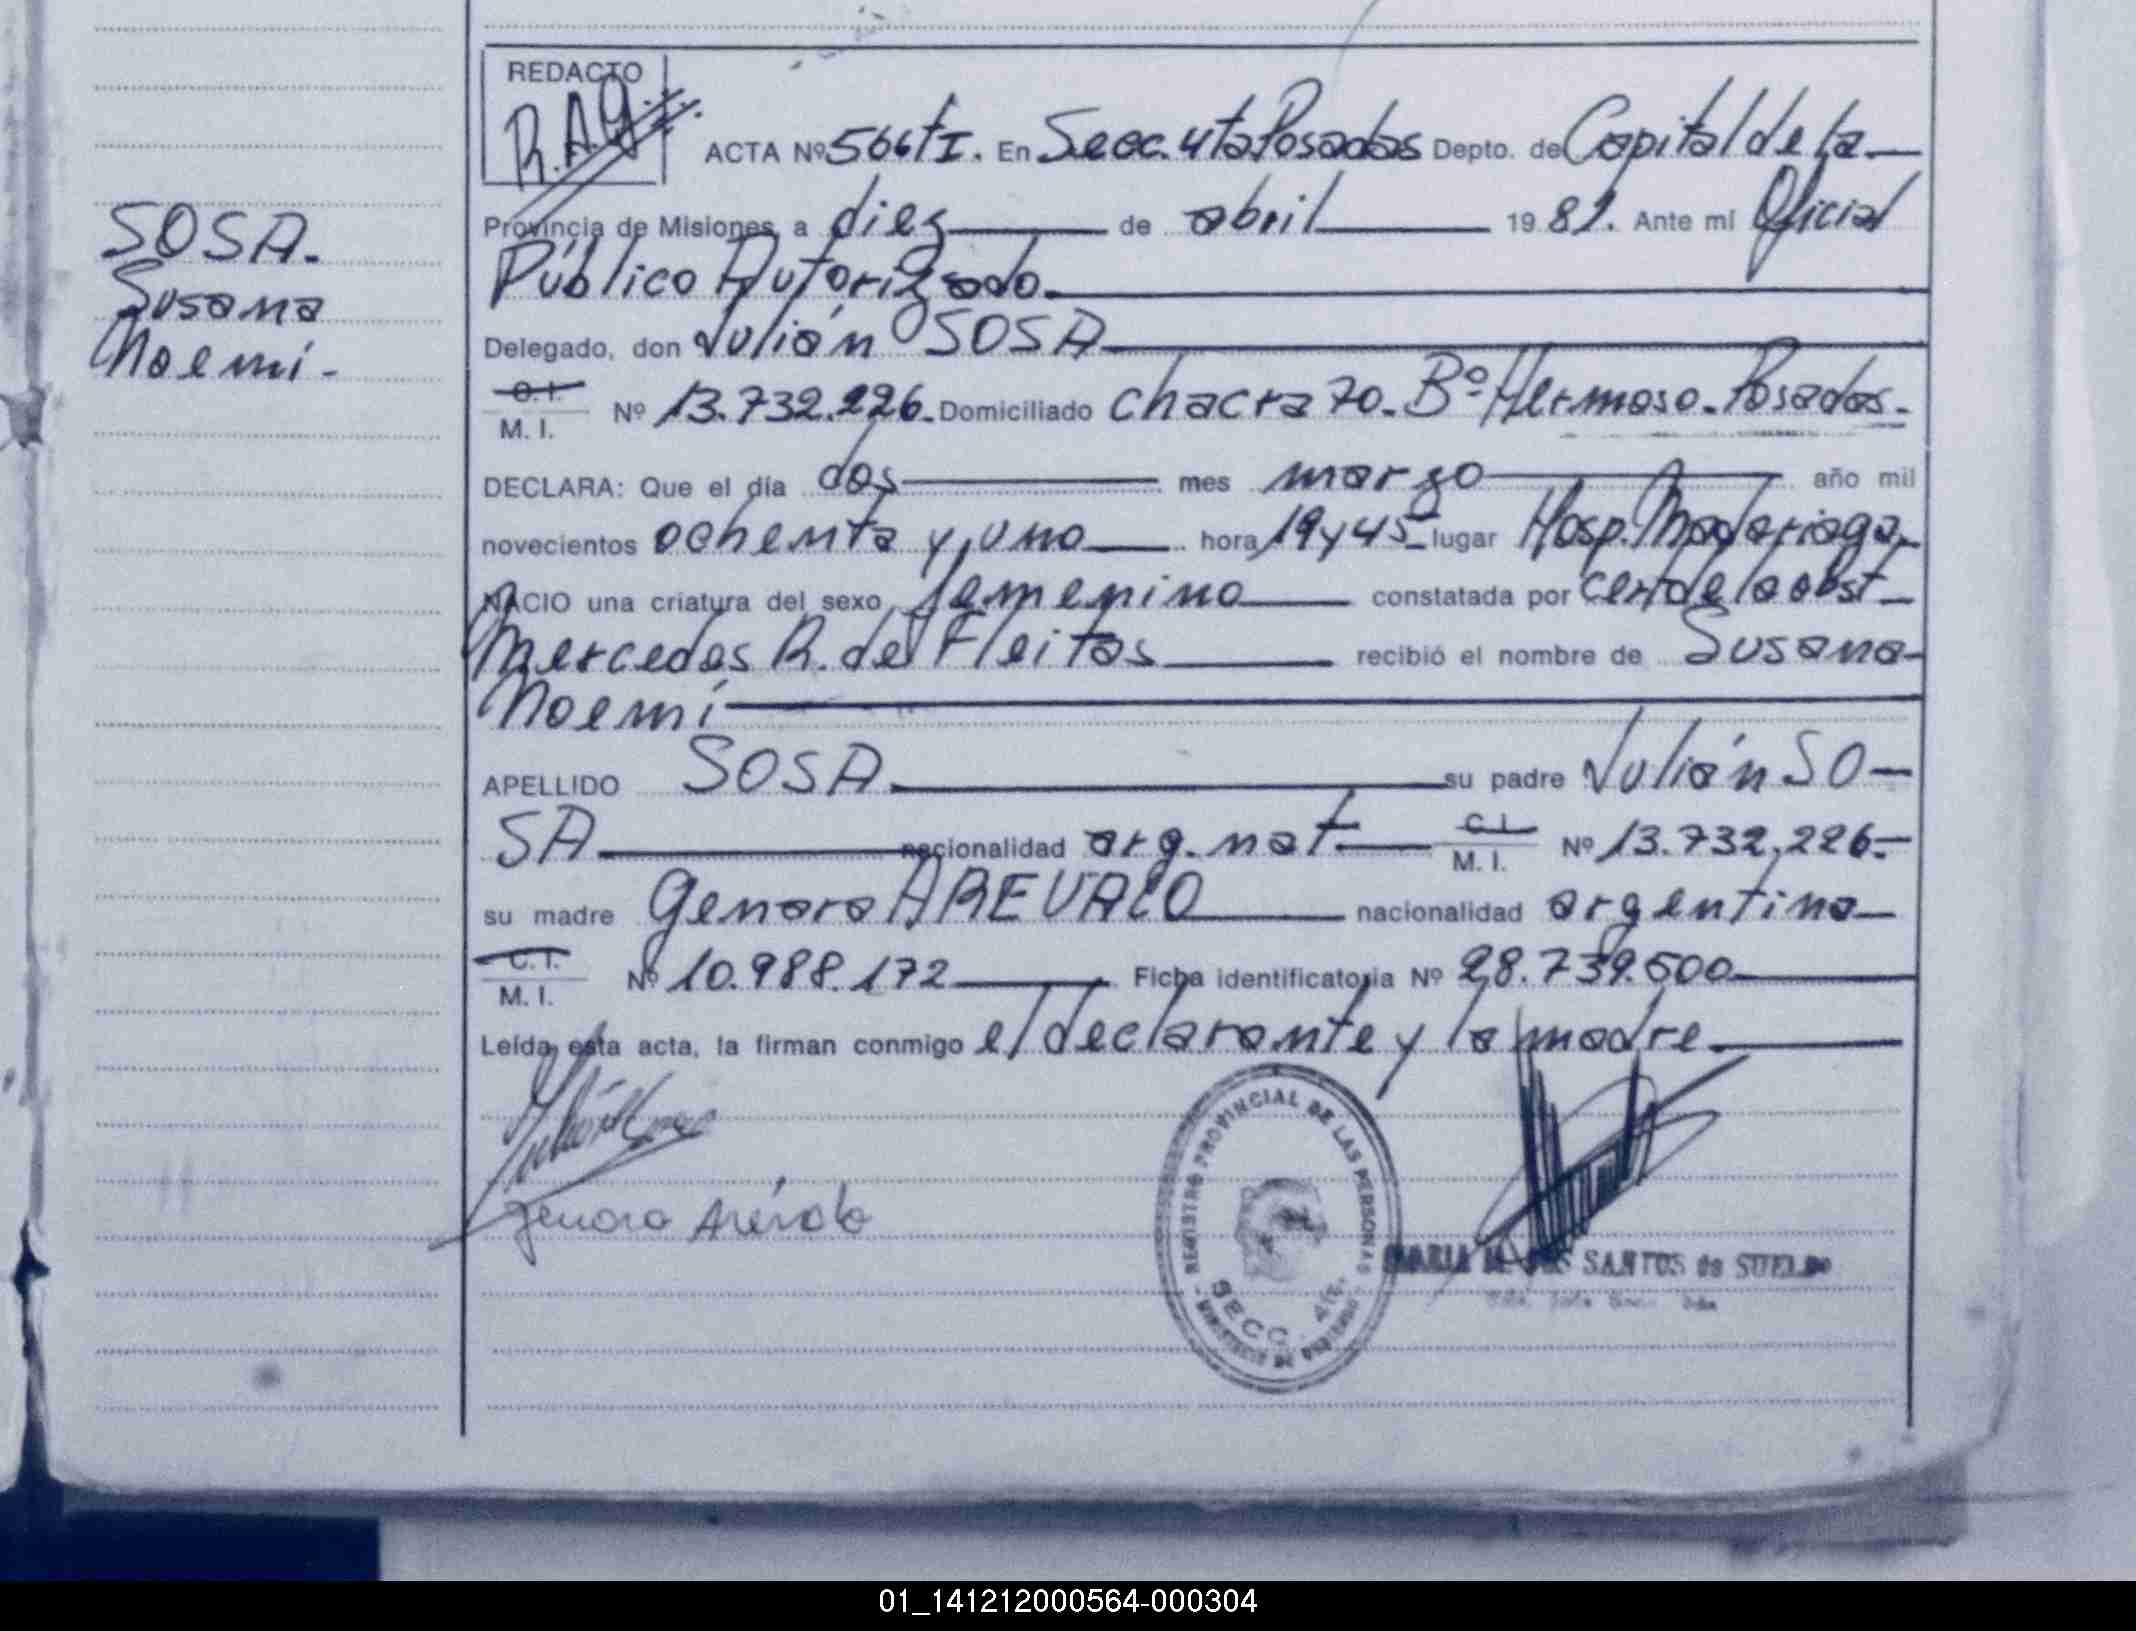 REDACTO
R.A.G.
ACTA Nº 566 tI. En Secc. 4ta Posadas Depto. de Capital de la
Provincia de Misiones, a diez de abril 1981. Ante mí Oficial
Público Autorizado.
SOSA.
Susana
Noemí.
Delegado, don Julián SOSA
C.I.
M. I. Nº 13.732.226. Domiciliado chacra 70. Bº Hermoso. Posadas.
DECLARA: Que el día dos mes marzo año mil
novecientos ochenta y uno hora 19 y 45 lugar Hosp. Madariaga
NACIO una criatura del sexo femenino constatada por cert de la obst
Mercedes R. de Fleitas recibió el nombre de Susana
Noemí
APELLIDO SOSA su padre Julián SO-
SA nacionalidad arg. nat. C.I.
M. I. Nº 13.732.226.
su madre Genara AREVALO nacionalidad argentina
C.I.
M. I. Nº 10.988.172 Ficha identificatoria Nº 28.739.500
Leída esta acta, la firman conmigo el declarante y la madre.
Genara Arévalo
REGISTRO PROVINCIAL DE LAS PERSONAS
SECC. 4ta.
MINISTERIO DE GOBIERNO
MARIA SANTOS de SUELDO
01_141212000564-000304